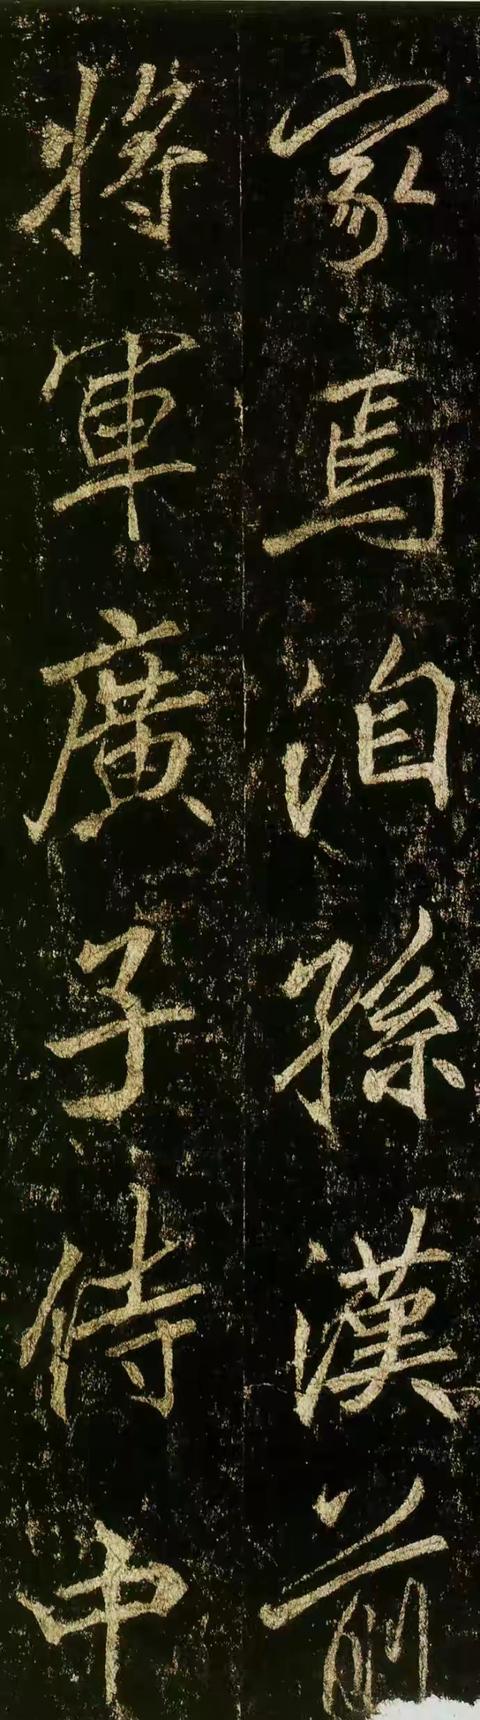 家焉洎孫漢前
將軍廣子侍中